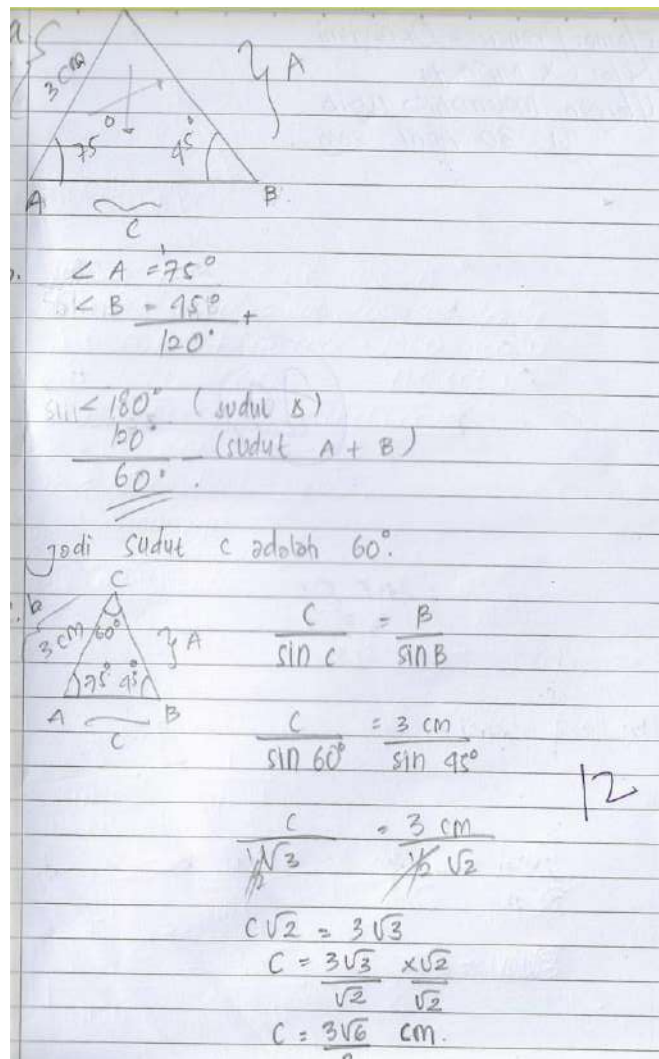 a.
3 cm
A
75°
45°
A
B
C
b.
< A = 75°
< B = 45° +
120°
< 180° (sudut
120° - (sudut A + B)
60°
Jadi sudut c adalah 60°.
b
C
3 cm
60°
A
75° 45°
A B
C
C / sin c = B / sin B
C / sin 60° = 3 cm / sin 45°
C / ½√3 = 3 cm / ½ √2
12
C√2 = 3√3
C = 3√3 / √2 × √2 / √2
C = 3√6 / 2 cm.